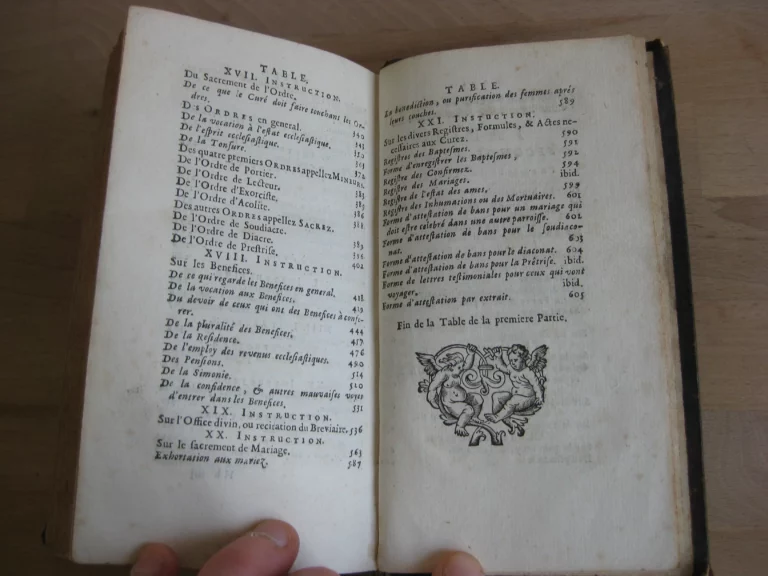 TABLE.
XVII. INSTRUCTION.
Du Sacrement de l'Ordre.
De ce que le Curé doit faire touchant les Or-
dres.
DES ORDRES en general.
De la vocation à l'estat ecclesiastique.
De l'esprit ecclesiastique.
De la Tonsure.
Des quatre premiers ORDRES appellez MINEURS.
De l'Ordre de Portier.
De l'Ordre de Lecteur.
De l'Ordre d'Exorciste.
De l'Ordre d'Acolite.
Des autres ORDRES appellez SACREZ.
De l'Ordre de Soudiacre.
De l'Ordre de Diacre. 389
De l'Ordre de Prestrise. 396
XVIII. INSTRUCTION. 402
Sur les Benefices.
De ce qui regarde les Benefices en general. 418
De la vocation aux Benefices. 419
Du devoir de ceux qui ont des Benefices à confe-
rer.
De la pluralité des Benefices. 444
De la Residence. 457
De l'employ des revenus ecclesiastiques. 476
Des Pensions. 490
De la Simonie. 514
De la confidence, & autres mauvaises voyes 520
d'entrer dans les Benefices. 531
XIX. INSTRUCTION.
Sur l'Office divin, ou recitation du Breviaire. 536
XX. INSTRUCTION.
Sur le sacrement de Mariage. 563
Exhortation aux mariez. 587
TABLE.
La benediction, ou purification des femmes aprés
leurs couches. 589
XXI. INSTUCTION.
Sur les divers Registres, Formules, & Actes ne-
cessaires aux Curez. 590
Registre des Baptesmes. 591
Forme d'enregistrer les Baptesmes, 592
Registre des Confirmez. 594
Registre des Mariages. ibid.
Registre de l'estat des ames. 599
Registre des Inhumations ou des Mortuaires. 601
Forme d'attestation de bans pour un mariage qui
doit estre celebré dans une autre parroisse. 602
Forme d'attestation de bans pour le soudiaco-
nat. 603
Forme d'attestation de bans pour le diaconat. 604
Forme d'attestation de bans pour la Prêtrise. ibid.
Forme de lettres testimoniales pour ceux qui vont
voyager. ibid.
Forme d'attestation par extrait. 605
Fin de la Table de la premiere Partie.